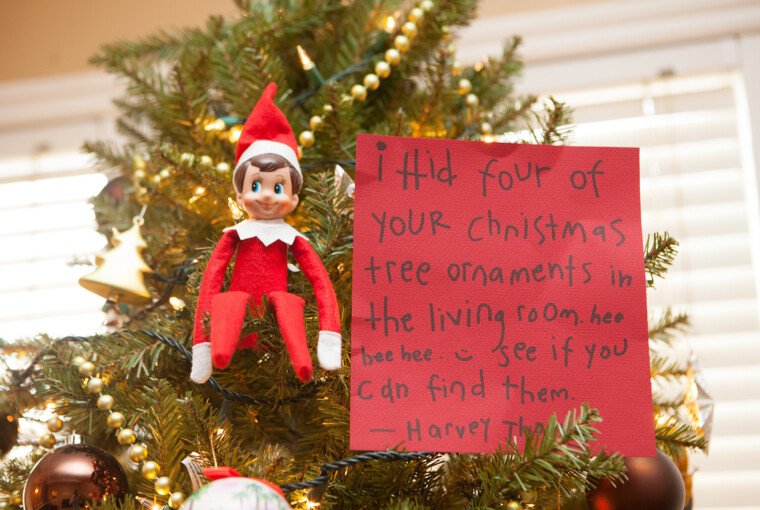 i Hid four of
your christmas
tree ornaments in
the living room. hee
hee hee. see if you
can find them.
— Harvey